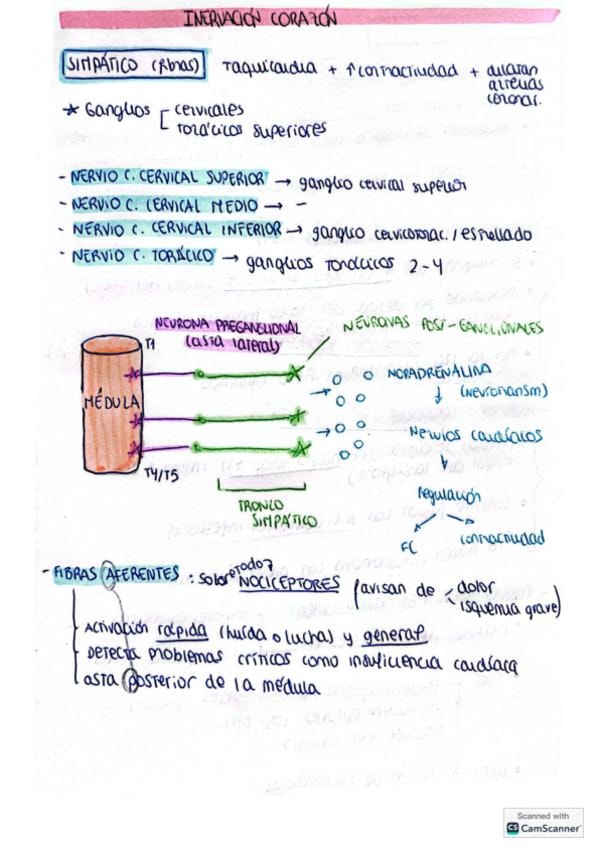 INERVACIÓN CORAZÓN
SIMPÁTICO (fibras) Taquicardia + ↑ contractiudad + dilatan
arterias
coronar.
* Ganglios [ cervicales
torácicos superiores
- NERVIO C. CERVICAL SUPERIOR → ganglio cervical superior
- NERVIO C. CERVICAL MEDIO → -
- NERVIO C. CERVICAL INFERIOR → ganglio cervicotorac. / estrellado
- NERVIO C. TORÁCICO → ganglios torácicos 2-4
NEURONA PREGANGLIONAL
(asta lateral)
NEURONAS POST-GANGLIONALES
T1
MÉDULA
T4/T5
TRONCO
SIMPÁTICO
NORADRENALINA
↓ (neurotransm)
Nervios cardíacos
↓
Regulación
FC
contractiudad
- FIBRAS AFERENTES : sobre todo NOCICEPTORES (avisan de < dolor
isquemia grave)
Activación rápida (huida o lucha) y general
Detecta problemas críticos como insuficiencia cardíaca
asta posterior de la médula
Scanned with
CS CamScanner